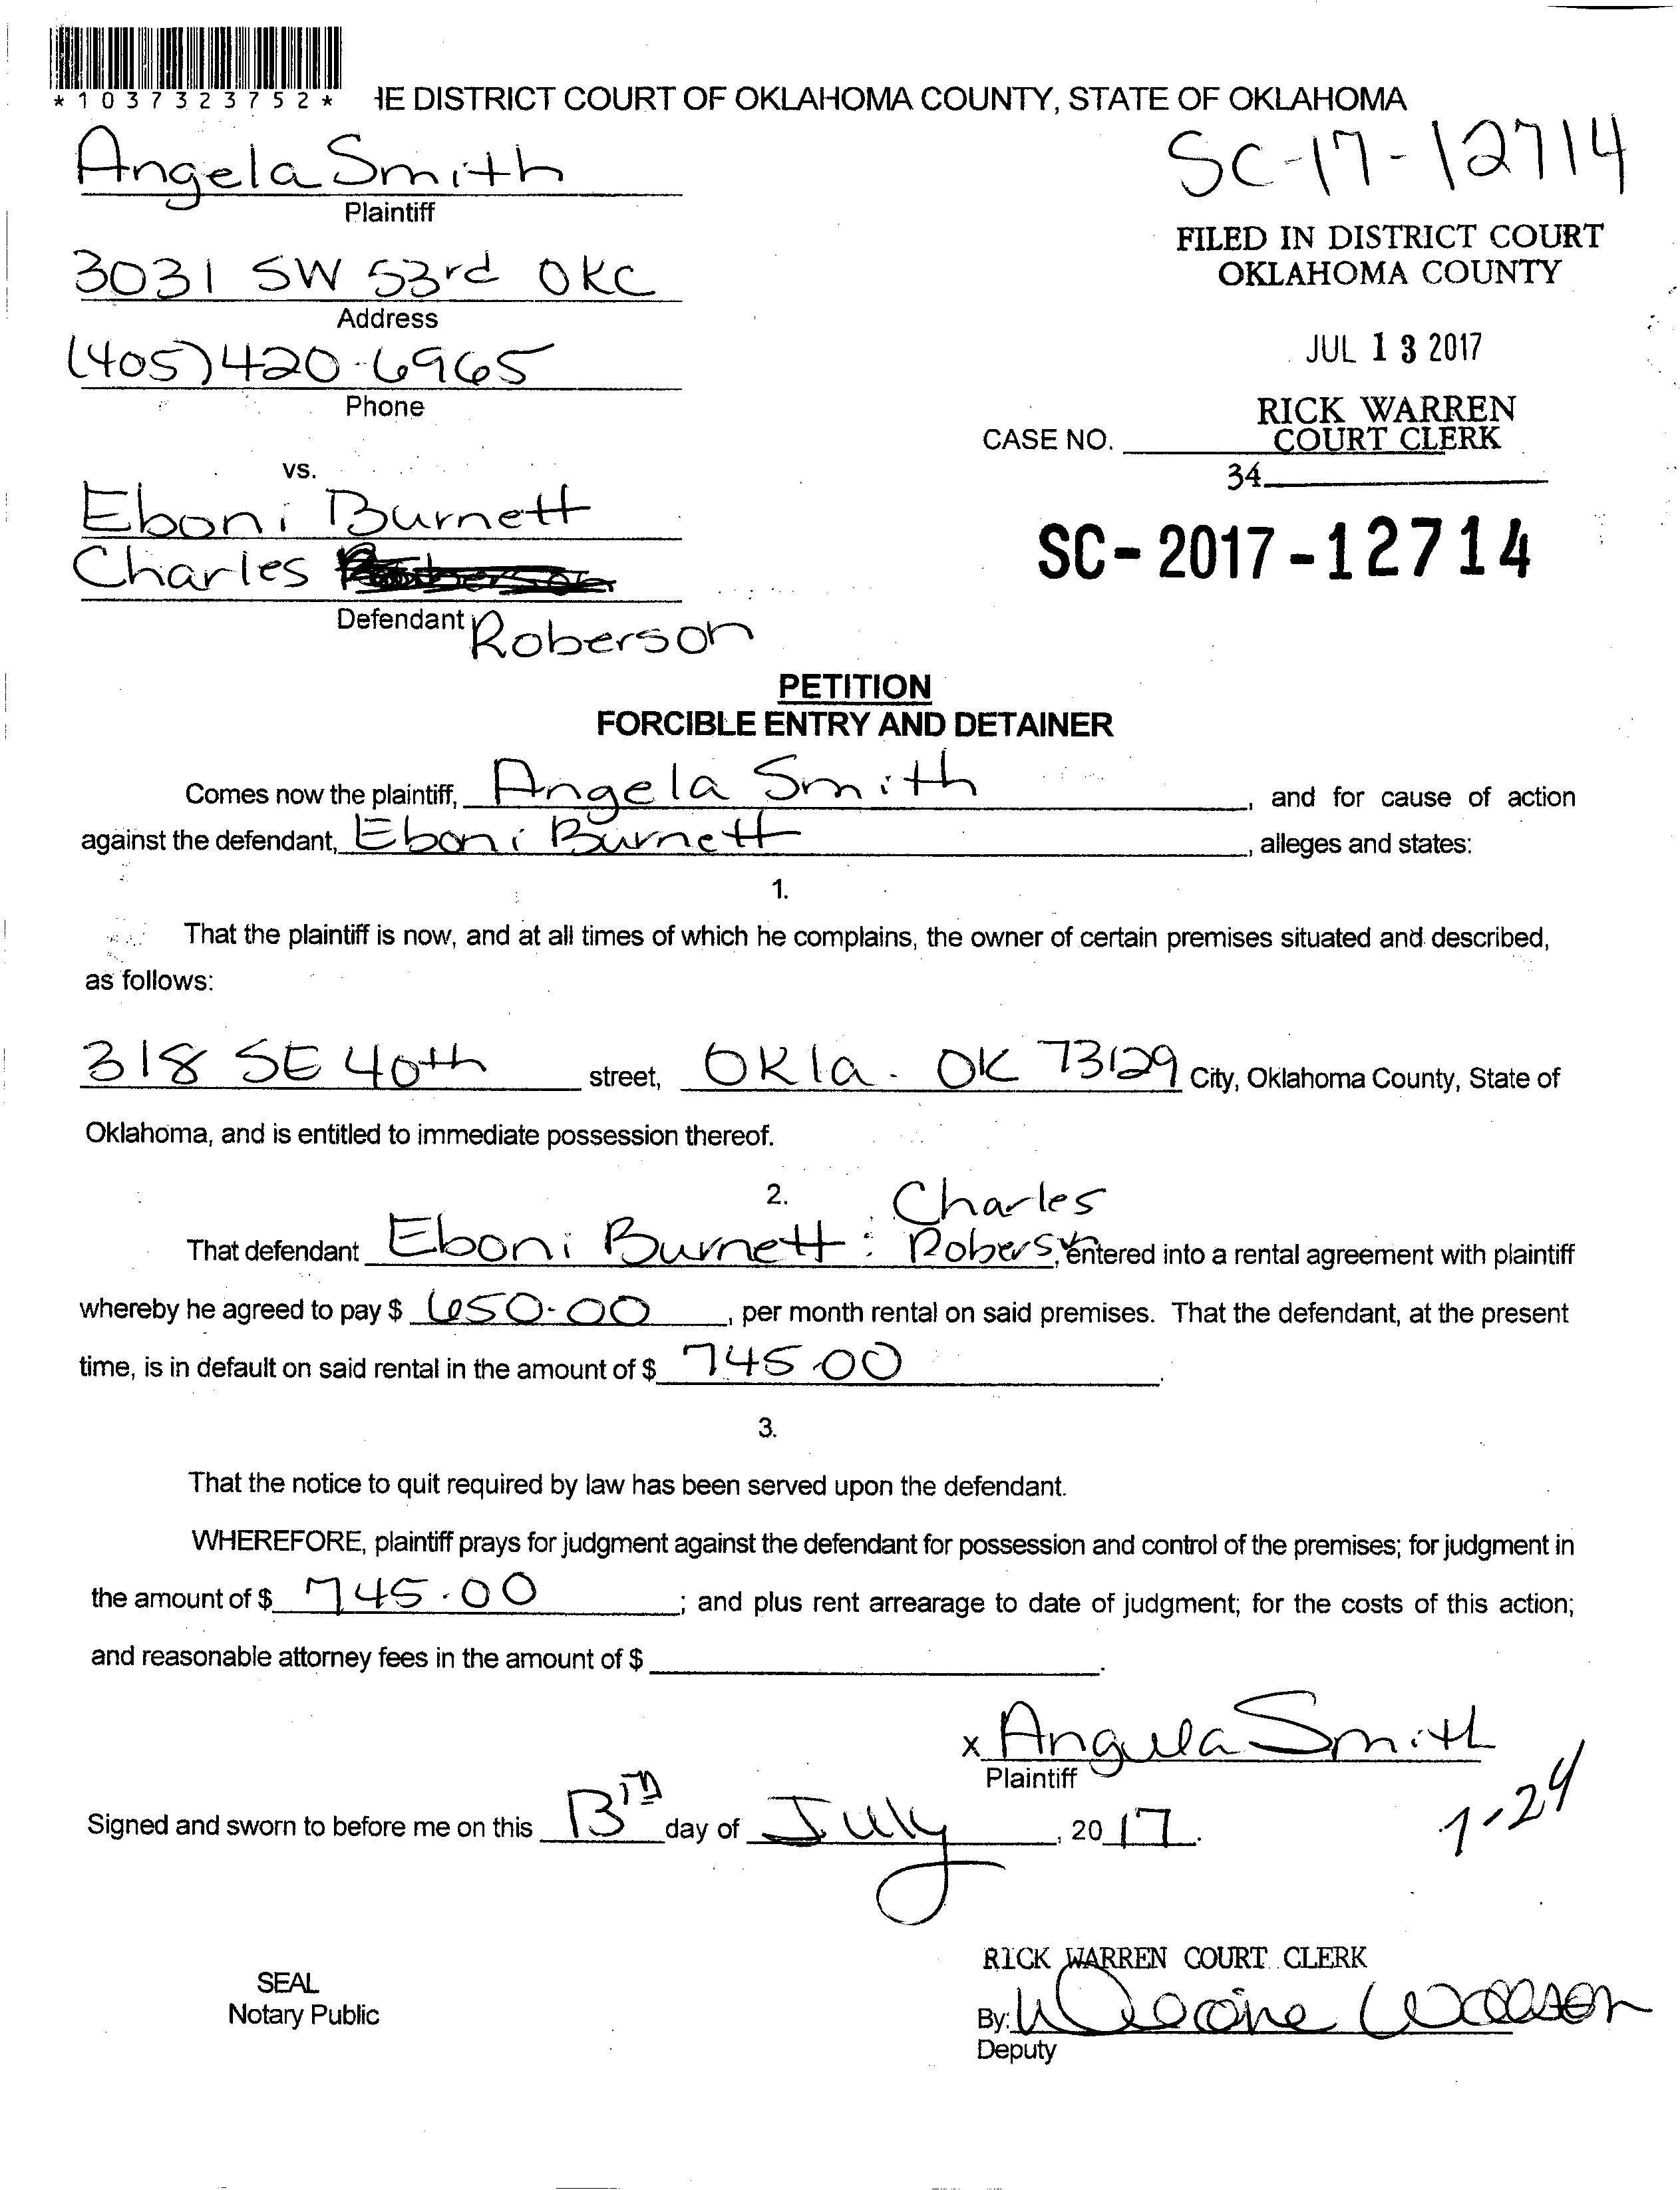 *1037323752*
IE DISTRICT COURT OF OKLAHOMA COUNTY, STATE OF OKLAHOMA
Angela Smith
Plaintiff
SC-17-12714
FILED IN DISTRICT COURT
OKLAHOMA COUNTY
3031 SW 53rd OKC
Address
JUL 13 2017
(405)420-6965
Phone
RICK WARREN
CASE NO. COURT CLERK
vs.
34
Eboni Burnett
SC-2017-12714
Charles
Defendant Roberson
PETITION
FORCIBLE ENTRY AND DETAINER
Comes now the plaintiff, Angela Smith, and for cause of action
against the defendant, Eboni Burnett, alleges and states:
1.
That the plaintiff is now, and at all times of which he complains, the owner of certain premises situated and described,
as follows:
318 SE 40th street, Okla. OK 73129 City, Oklahoma County, State of
Oklahoma, and is entitled to immediate possession thereof.
2.
Charles
That defendant Eboni Burnett : Roberson, entered into a rental agreement with plaintiff
whereby he agreed to pay $ 650.00, per month rental on said premises. That the defendant, at the present
time, is in default on said rental in the amount of $ 745.00.
3.
That the notice to quit required by law has been served upon the defendant.
WHEREFORE, plaintiff prays for judgment against the defendant for possession and control of the premises; for judgment in
the amount of $ 745.00; and plus rent arrearage to date of judgment; for the costs of this action;
and reasonable attorney fees in the amount of $ .
x Angela Smith
Plaintiff
Signed and sworn to before me on this 13TH day of July, 2017.
7-24
RICK WARREN COURT CLERK
SEAL
Notary Public
By:
Deputy